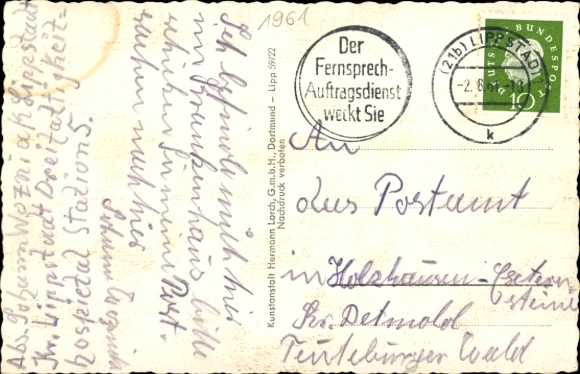 1961
Der
Fernsprech-
Auftragsdienst
weckt Sie
(21b) LIPPSTADT
-2.6.61-18
k
DEUTSCHE BUNDESPOST
10
An
das Postamt
in Holzhausen-Extern
steine
Kr. Detmold
Teuteburger Wald
Kunstanstalt Hermann Lorch, G.m.b.H., Dortmund — Lipp 59/22
Nachdruck verboten
Ich befinde mich hier
im Krankenhaus bitte
schicken sie meine Post-
sachen nach hier
Johann
Abs. Johann Lippstadt
Kr. Lippstadt Dreifaltigkeit-
hospital Station 5.